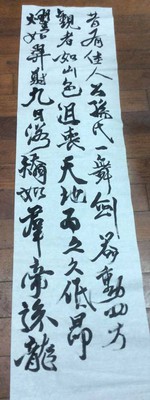 昔有佳人公孫氏一舞劍器動四方
觀者如山色沮喪天地為之久低昂
㸌如羿射九日落矯如羣帝驂龍